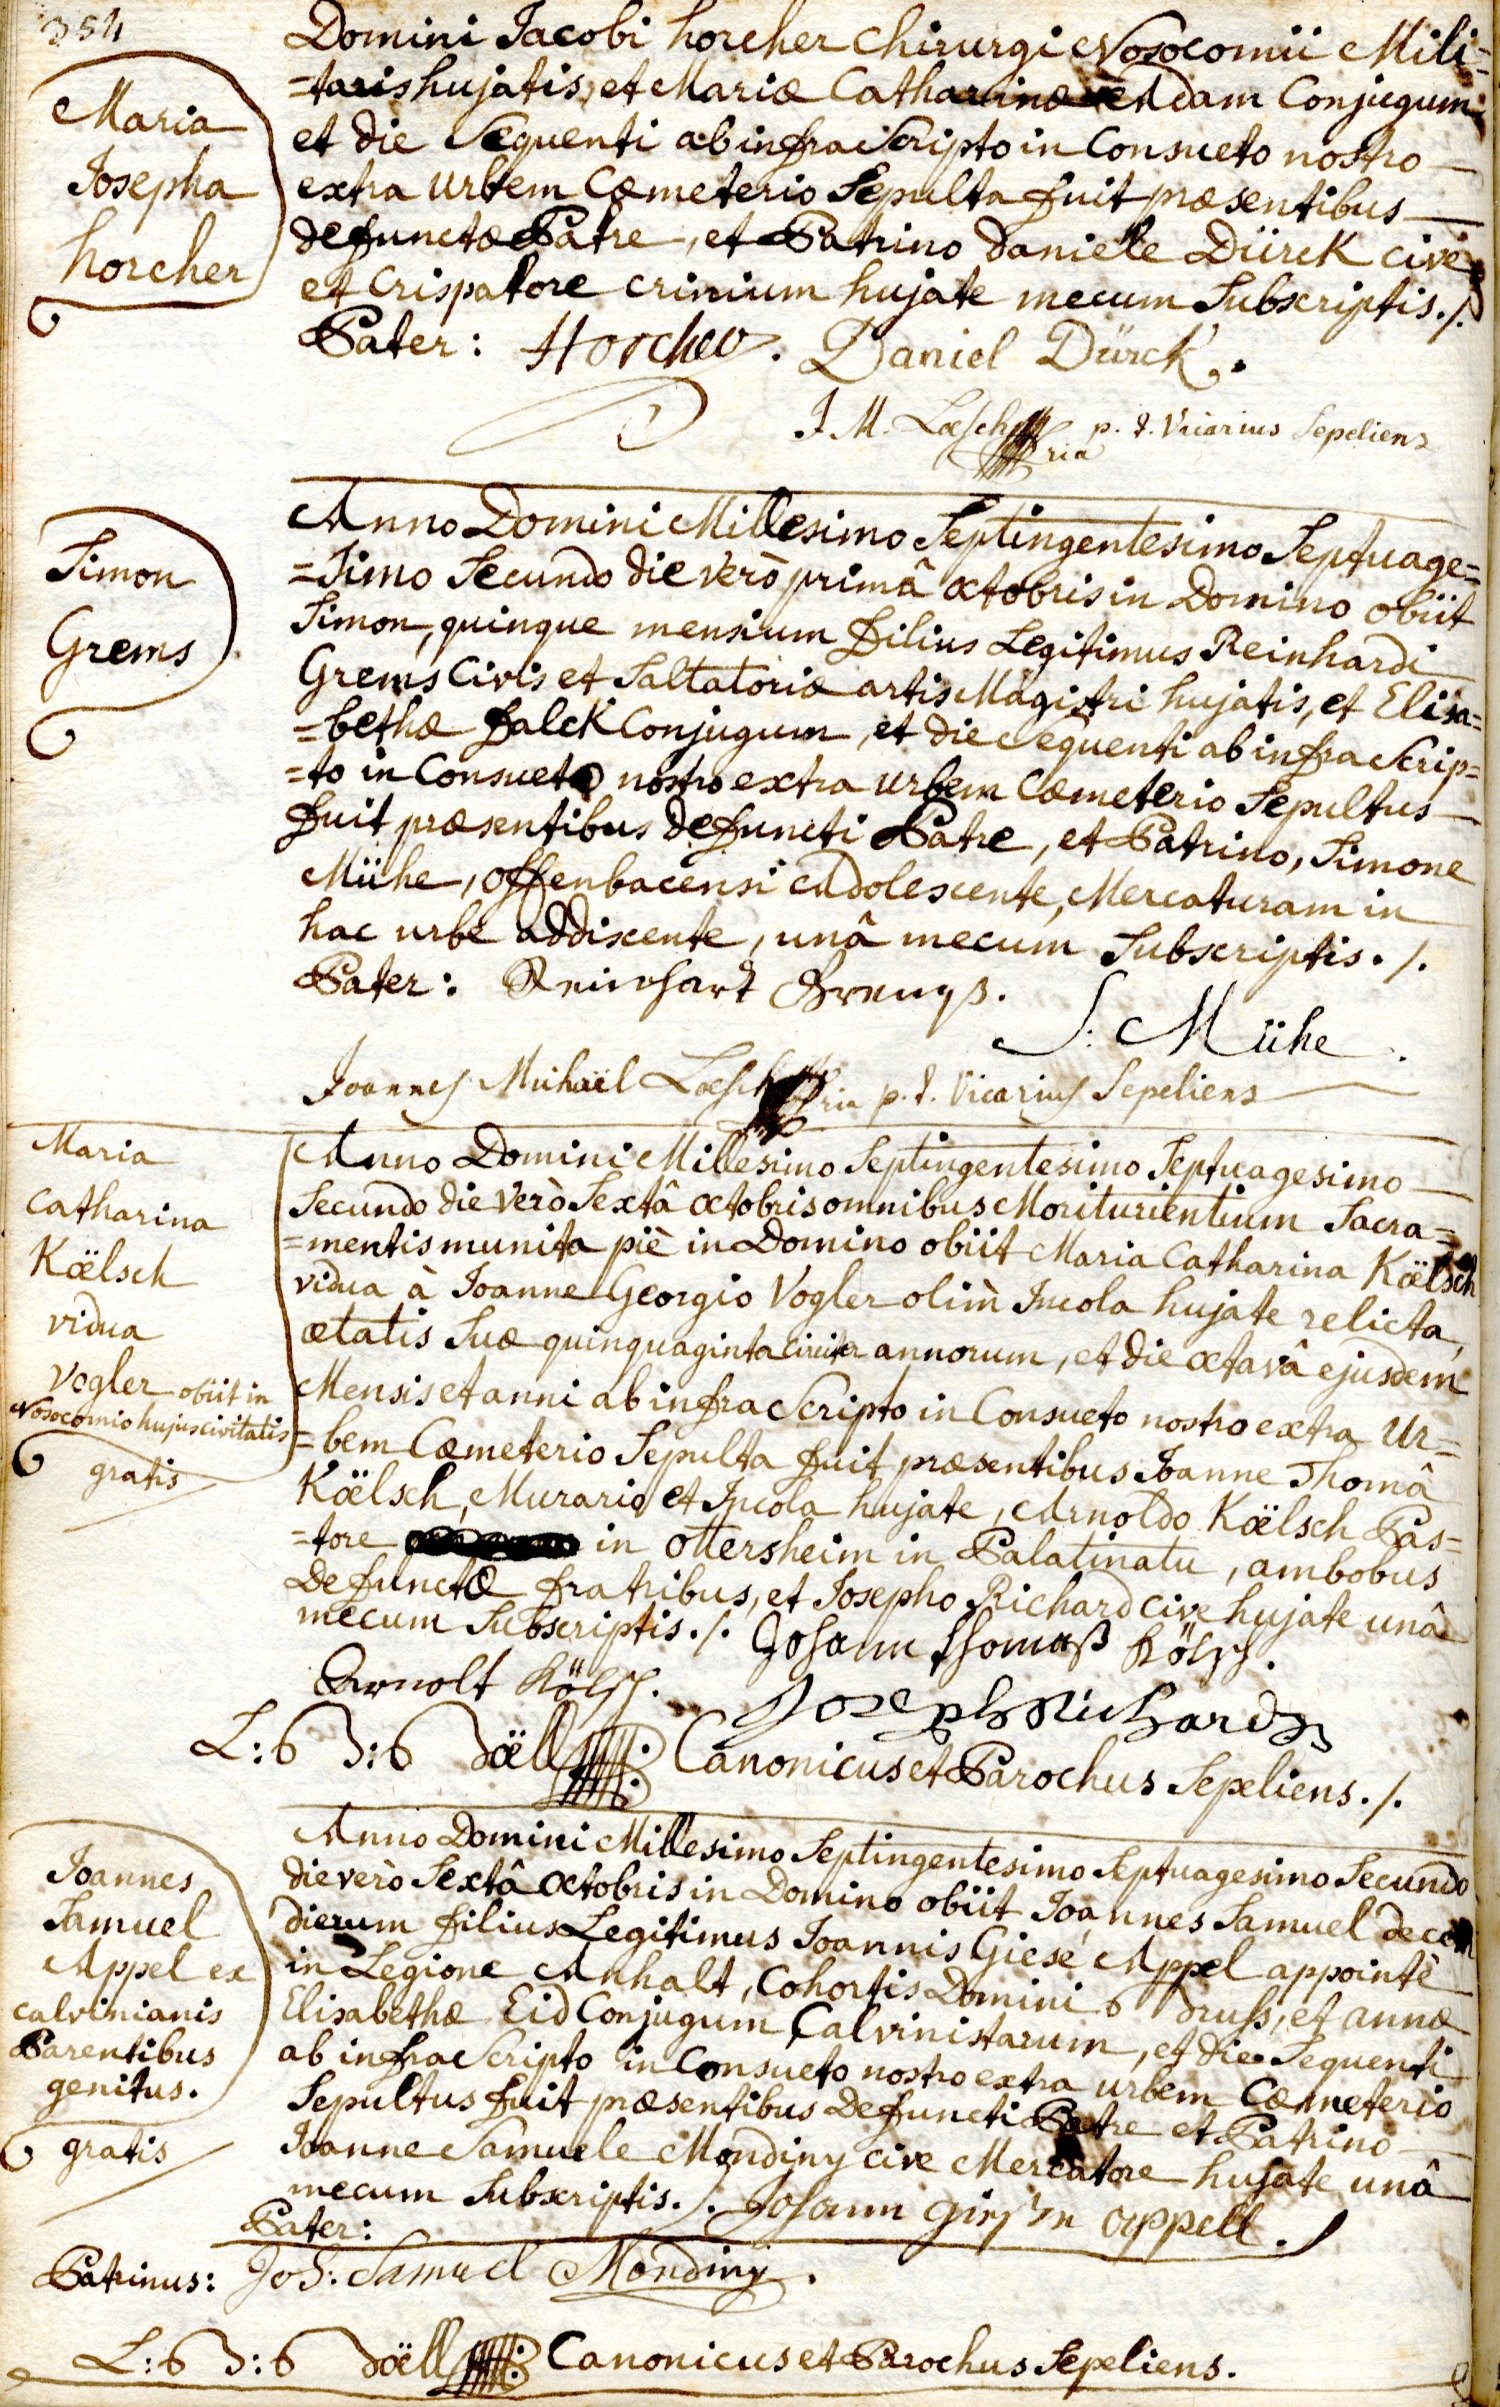 354
Maria
Josepha
horcher
Domini Jacobi horcher Chirurgi Nosocomii Mili-
=taris hujatis, et Mariæ Catharinæ Adam Conjugum,
et die Sequenti ab infra Scripto in Consueto nostro
extra urbem Cæmeterio Sepulta fuit præsentibus
defunctæ Patre, et Patrino Daniele Dürck cive
et Crispatore crinium hujate mecum Subscriptis ./.
Pater: Horcher. Daniel Dürck.
J. M. Læsch p. t. Vicarius Sepeliens
Simon
Grems
Anno Domini Millesimo Septingentesimo Septuage=
=Simo Secundo die verò primâ octobris in Domino obiit
Simon, quinque mensium filius Legitimus Reinhardi
Grems Civis et Saltatoriæ artis Magistri hujatis, et Elisa=
=bethæ falck Conjugum, et die Sequenti ab infra Scrip=
=to in Consueto nostro extra urbem Cæmeterio Sepultus
fuit præsentibus defuncti Patre, et Patrino, Simone
Mühe, Offenbacensi Adolescente, Mercaturam in
hac urbe addiscente, unâ mecum Subscriptis ./.
Pater: Reinhart
S: Mühe.
Joannes Michaël Læsch p. t. Vicarius Sepeliens
Maria
Catharina
Kœlsch
vidua
Vogler obiit in
Nosocomio hujus civitatis
gratis
Anno Domini Millesimo Septingentesimo Septuagesimo
Secundo die verò Sextâ octobris omnibus Moriturientium Sacra=
=mentis munita piè in Domino obiit Maria Catharina Kœlsch
vidua à Joanne Georgio Vogler olim Incola hujate relicta,
ætatis Suæ quinquaginta circiter annorum, et die octavâ ejusdem
Mensis et anni ab infra Scripto in Consueto nostro extra Ur=
=bem Cæmeterio Sepulta fuit præsentibus Joanne Thomâ
Kœlsch, Murario et Incola hujate, Arnoldo Kœlsch Pas=
=tore in Ottersheim in Palatinatu, ambobus
Defunctæ fratribus, et Josepho Richard cive hujate unâ
mecum Subscriptis ./. Johann thomaß Kölsch.
Arnolt Kölsch.
Joseph Richard
L: B: Döll Canonicus et Parochus Sepeliens ./.
Joannes
Samuel
Appel ex
calvinianis
Parentibus
genitus.
gratis
Anno Domini Millesimo Septingentesimo Septuagesimo Secundo
die verò Sextâ octobris in Domino obiit Joannes Samuel decem
dierum filius Legitimus Joannis Giesé Appel appointé
in Legione Anhalt, Cohortis Domini Druss, et annæ
Elisabethæ Eid Conjugum Calvinistarum, et die Sequenti
ab infra Scripto in Consueto nostro extra urbem Cæmeterio
Sepultus fuit præsentibus Defuncti Patre et Patrino
Joanne Samuele Mondiny cive Mercatore hujate unâ
mecum Subscriptis ./. Johann appell.
Pater:
Patrinus: Joh: Samuel Mondiny.
L: B: Döll Canonicus et Parochus Sepeliens.